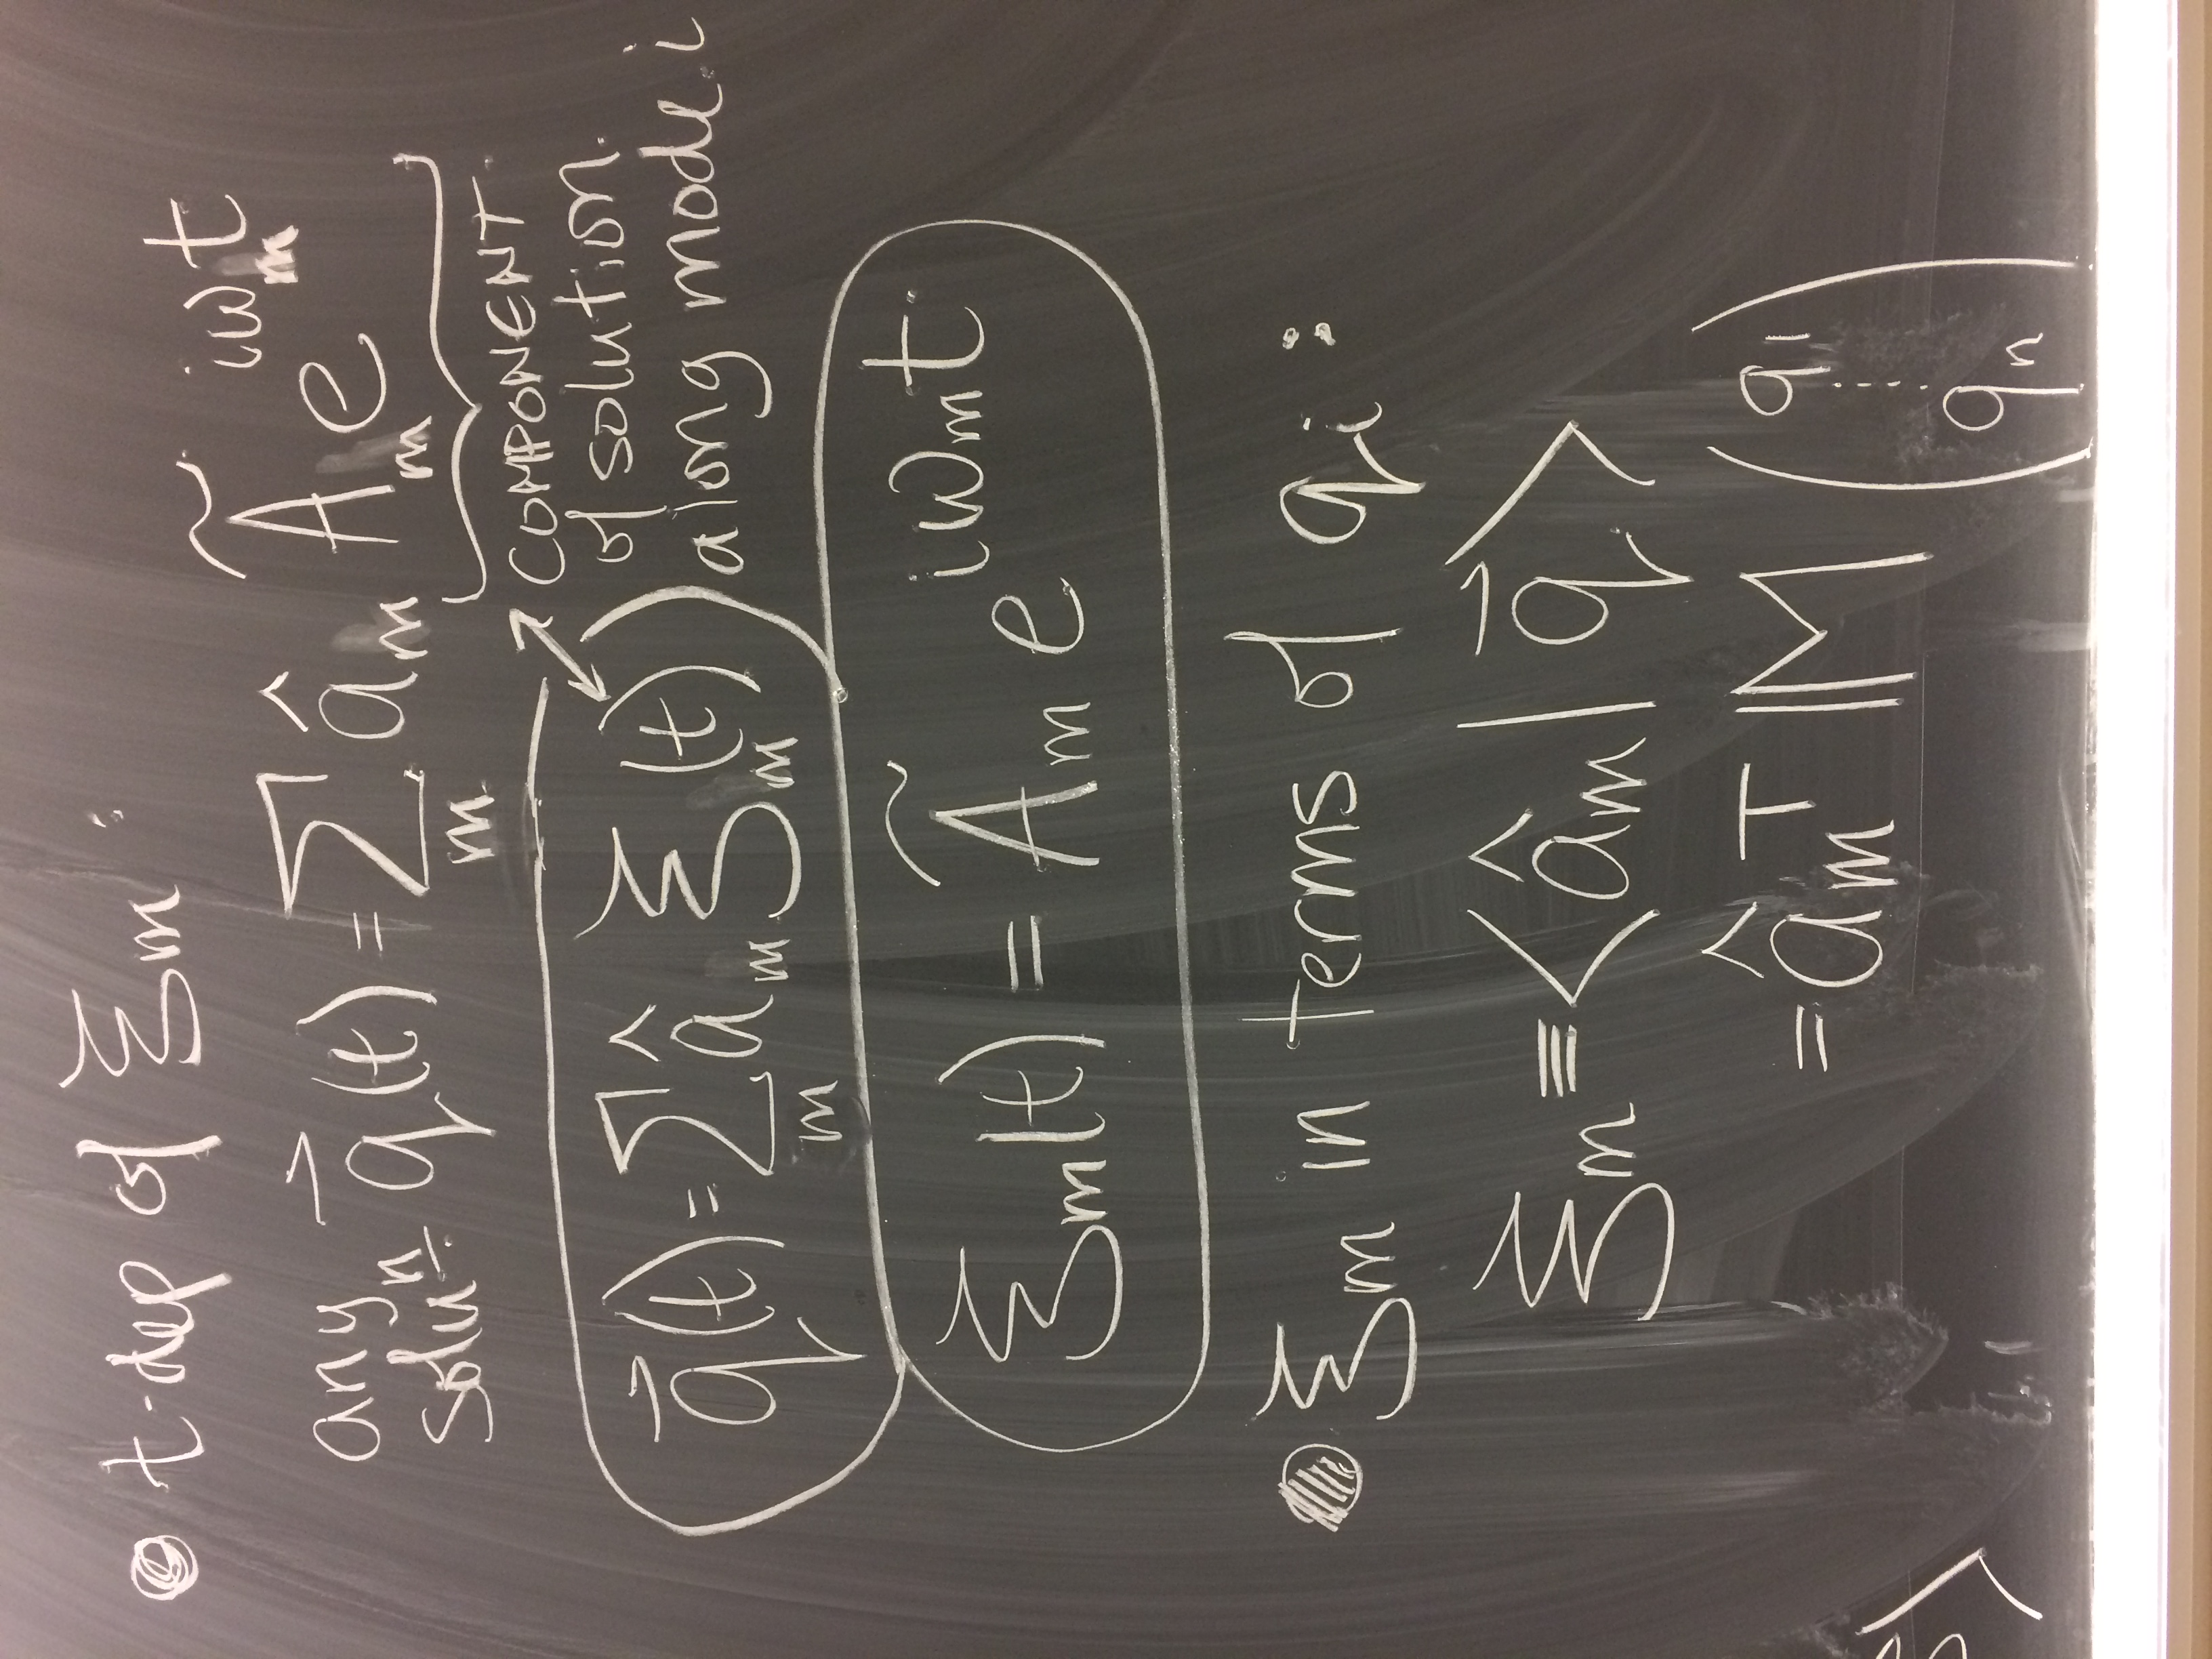 • t-dep of ξm:
any solⁿ. q⃗(t) = Σ_m âm Ãm e^{iωmt}
COMPONENT
of solution
along mode i
q⃗(t) = Σ_m âm ξm(t)
ξm(t) = Ãm e^{iωmt}
• ξm in terms of qi:
ξm ≡ <âm|q⃗>
= âm^T M (q1 ⋮ qn)